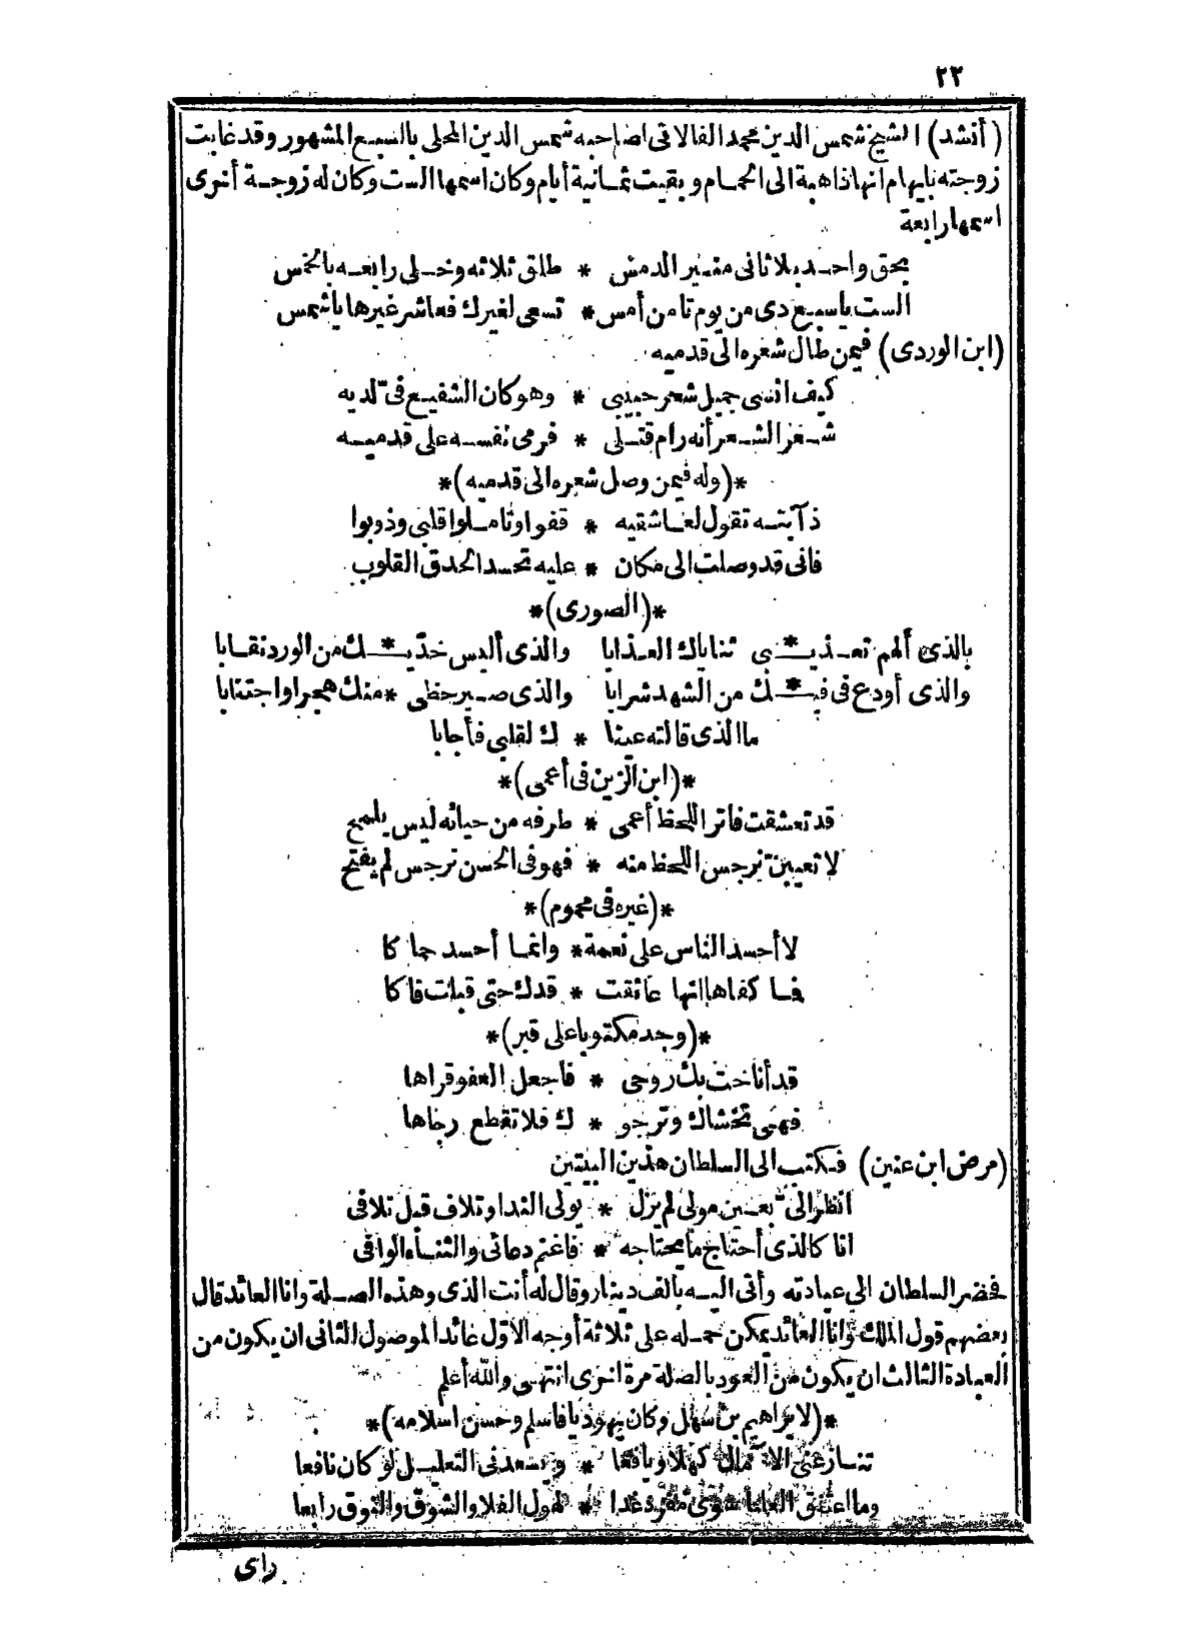 ٢٢
(أنشد) الشيخ شمس الدين محمد الفالاتى لصاحبه شمس الدين المحلى بالسبع المشهور وقد غابت
زوجته بايهام انها ذاهبة الى الحمام وبقيت ثمانية أيام وكان اسمها الست وكان له زوجة أخرى
اسمها رابعة
بحق واحد بلا ثانى منير الدمس * طلق ثلاثه وخلى رابعه بالخمس
الست ياسبع دى من يوم تامن أمس * تسعى لغيرك فعاشر غيرها ياشمس
(ابن الوردى) فيمن طال شعره الى قدميه
كيف انسى جميل شعر حبيبى * وهو كان الشفيع فىّ لديه
شعر الشعر أنه رام قتلى * فرمى نفسه على قدميه
*(وله فيمن وصل شعره الى قدميه)*
ذآبته تقول لعاشقيه * قفوا وتاملوا قلبى وذوبوا
فانى قد وصلت الى مكان * عليه تحسد الحدق القلوب
*(الصورى)*
بالذى ألهم تعذيـ * ـبى ثناياك العذابا والذى ألبس خدّيـ * ـك من الورد نقابا
والذى أودع فى فيـ * ـك من الشهد شرابا والذى صير حظى * منك هجرا واجتنابا
ما الذى قالته عينا * ك لقلبى فأجابا
*(ابن الزين فى أعمى)*
قد تعشقت فاتر اللحظ أعمى * طرفه من حيائه ليس يلمح
لا تعيبن نرجس اللحظ منه * فهو فى الحسن نرجس لم يفتح
*(غيره فى محموم)*
لا أحسد الناس على نعمة * وانما أحسد حماكا
فما كفاها انها عانقت * قدك حتى قبلت فاكا
*(وجد مكتوبا على قبر)*
قد أناخت بك روحى * فاجعل العفو قراها
فهى تخشاك وترجو * ك فلا تقطع رجاها
(مرض ابن عنين) فكتب الى السلطان هذين البيتين
انظر الىّ بعين مولى لم يزل * يولى الندا وتلاف قبل تلافى
انا كالذى أحتاج ما يحتاجه * فاغنم دعائى والثناء الوافى
فحضر السلطان الى عيادته وأتى اليه بألف دينار وقال له أنت الذى وهذه الصلة وانا العائد قال
بعضهم قول الملك وانا العائد يمكن حمله على ثلاثة أوجه الاوّل عائد الموصول الثانى ان يكون من
العيادة الثالث ان يكون من العود بالصلة مرة اخرى انتهى والله أعلم
*(لابراهيم بن سهل وكان يهوديا فاسلم وحسن اسلامه)*
تنازعنى الآمال كهلا ويافعا * ويسعدنى التعليل لو كان نافعا
وما اعتنق العليا سوى مفرد غدا * لهول الفلا والشوق والنوق رابعا
راى